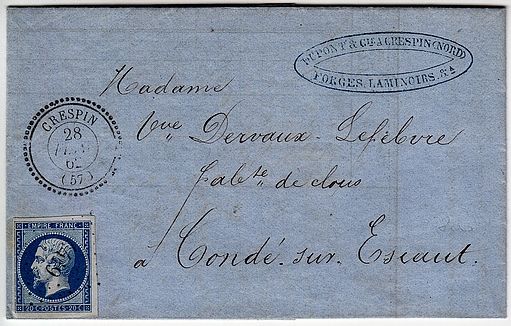 DUPONT & CIE A CRESPIN (NORD)
FORGES, LAMINOIRS, &A
Madame
Vve Dervaux-Lefebvre
fabte de clous
à Condé-sur-Escaut.
CRESPIN
28
62
(57)
EMPIRE FRANC.
20 C POSTES 20 C